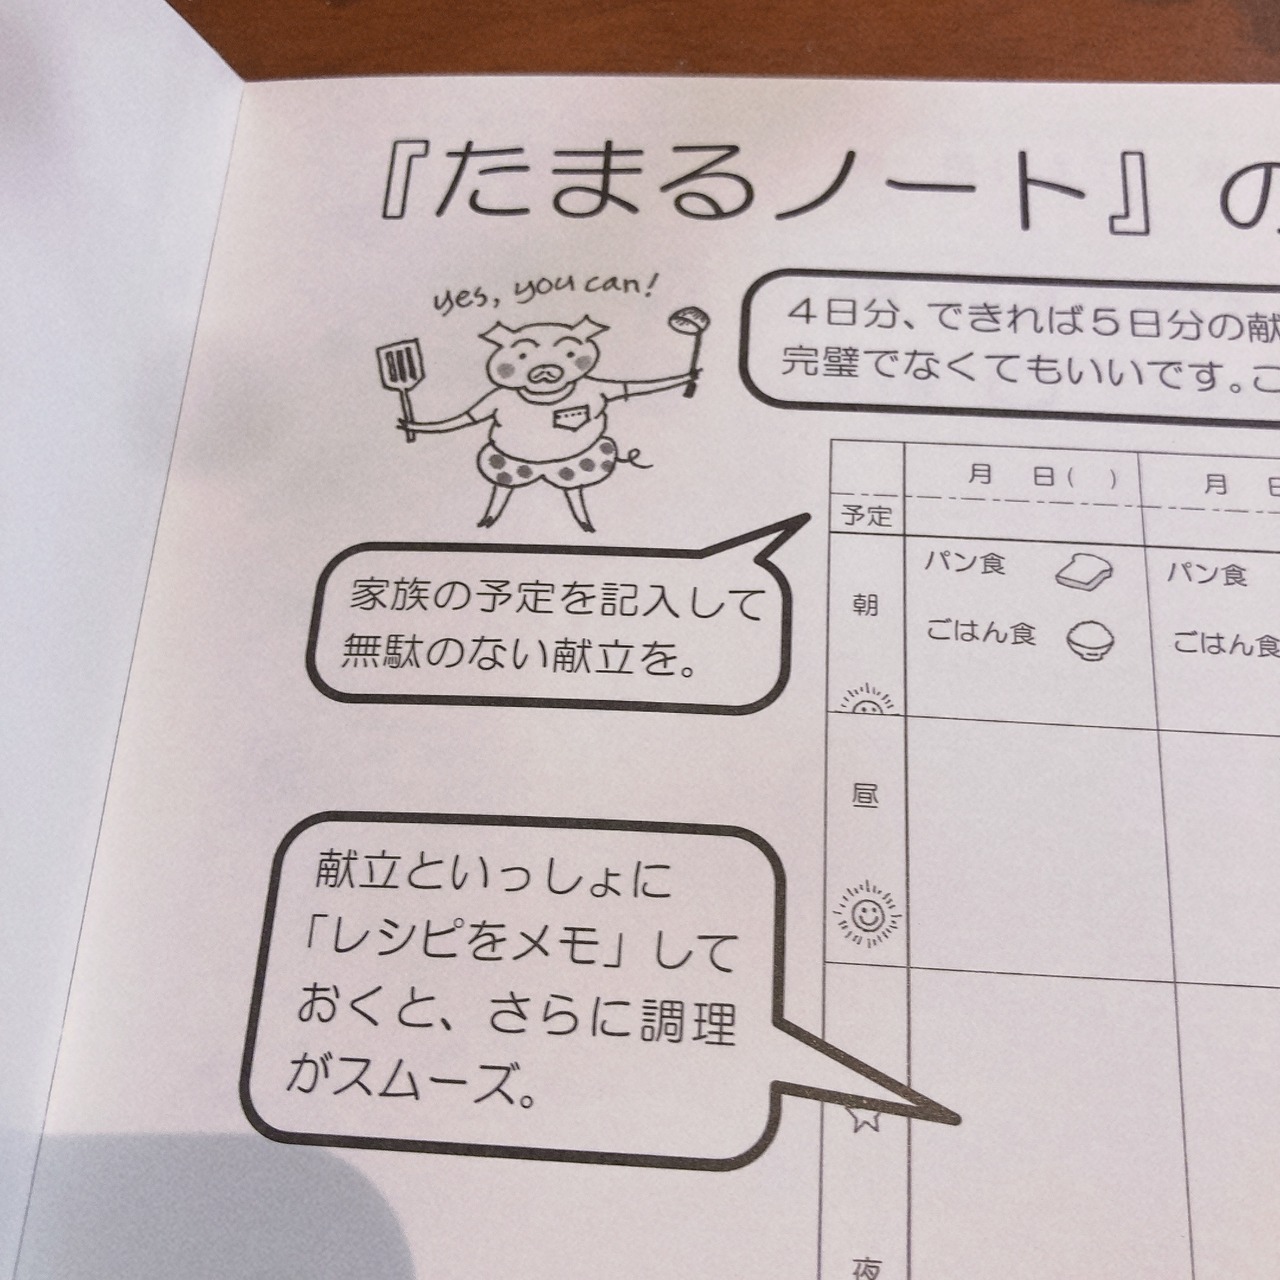 『たまるノート』の
yes, you can!
4日分、できれば5日分の献
完璧でなくてもいいです。こ
月 日( )
月 日
予定
家族の予定を記入して
無駄のない献立を。
朝
パン食
パン食
ごはん食
ごはん食
昼
献立といっしょに
「レシピをメモ」して
おくと、さらに調理
がスムーズ。
夜